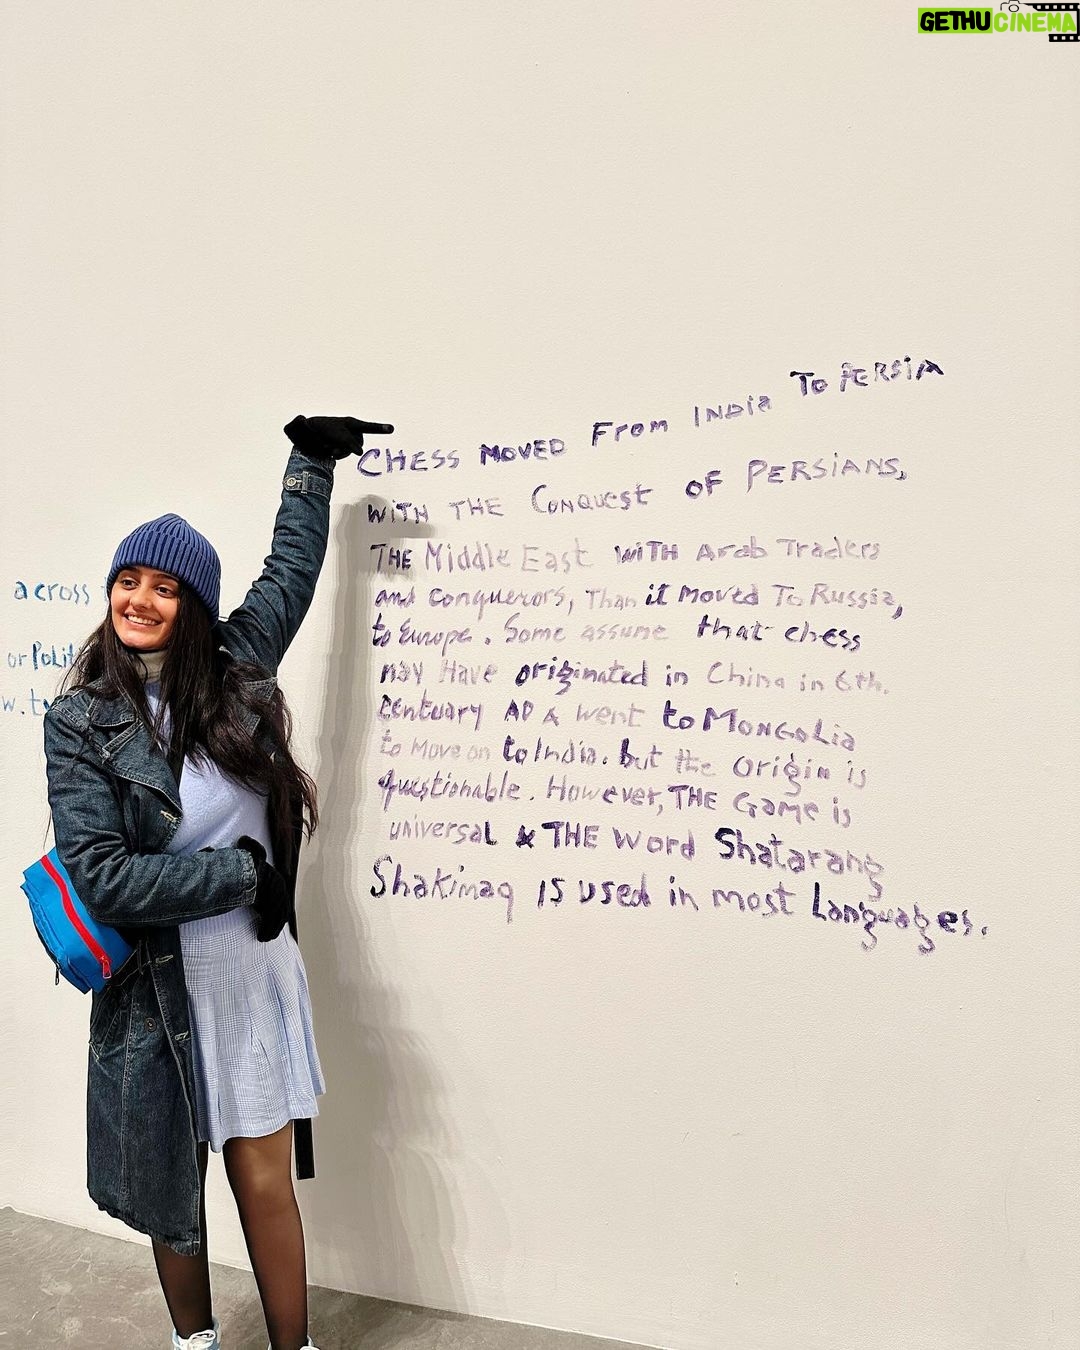 GETHU CINEMA
CHESS MOVED From INDia To PERSiA
WiTH THE CONQUEST OF PERSiANS,
THE Middle East WiTH Arab Traders
and conquerors, Than it Moved To Russia,
to Europe. Some assume that chess
may Have originated in China in 6th.
Centuary AD & went to MONGoLia
to Move on to India. but the origin is
questionable. However, THE Game is
universal & THE Word Shatarang
Shakimaq IS used in most Languages.
across
or Polit
w.